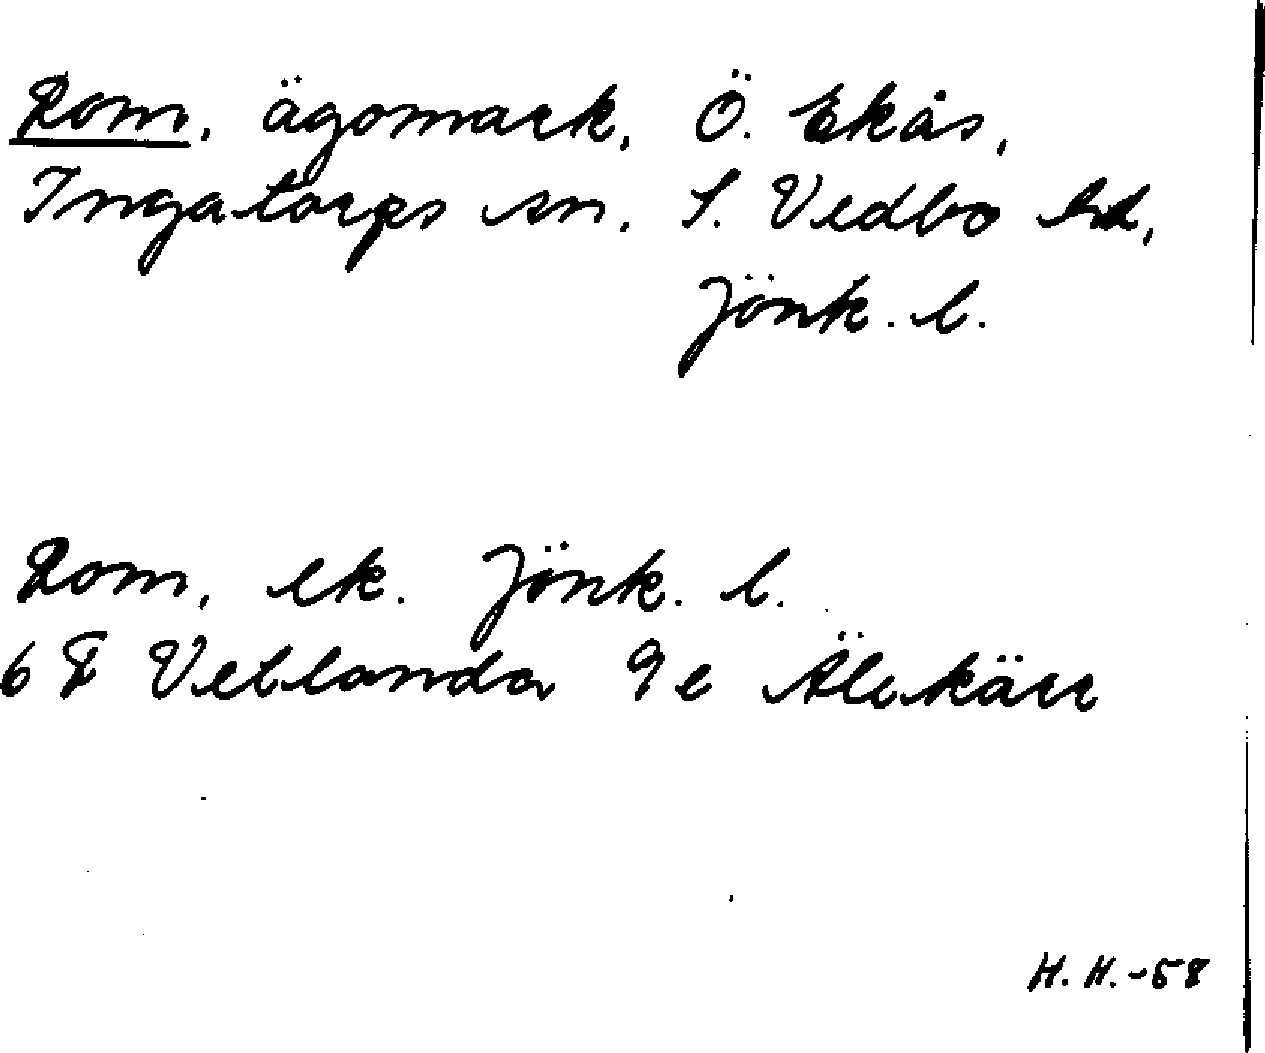 Rom, ägomark, Ö. Ekås,
Ingatorps sn. S. Vedbo hd,
Jönk. l.
Rom, ek. Jönk. l.
6 F Vetlanda 9 e Älekärr
H. H. -58